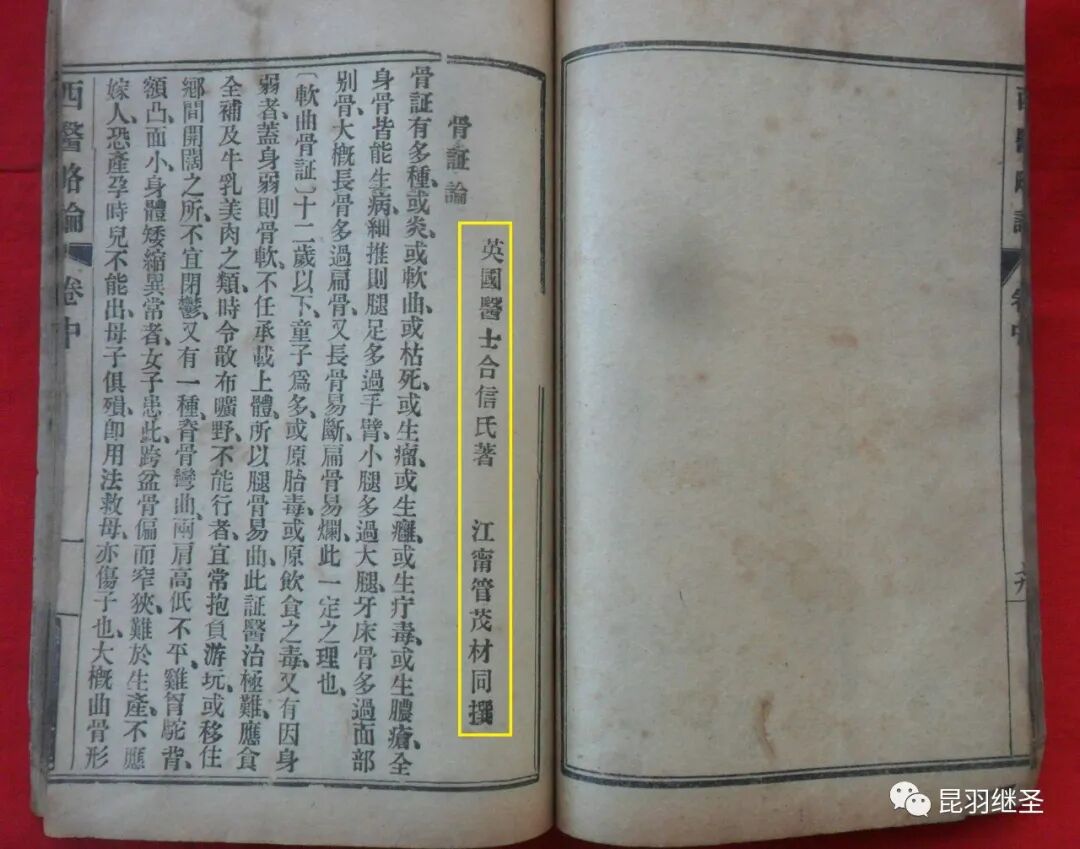 骨証論
英國醫士合信氏著 江甯管茂材同撰
骨証有多種、或炎、或軟曲、或枯死、或生瘤、或生癰、或生疔毒、或生膿瘡、全
身骨皆能生病、細推則腿足多過手臂、小腿多過大腿、牙床骨多過面部
别骨、大概長骨多過扁骨、又長骨易斷、扁骨易爛、此一定之理也、
〔軟曲骨証〕十二歲以下、童子爲多、或原胎毒、或原飲食之毒、又有因身
弱者、蓋身弱則骨軟、不任承載上體、所以腿骨易曲、此証醫治極難、應食
全補及牛乳美肉之類、時令散布曠野、不能行者、宜常抱負游玩、或移住
鄉間開闊之所、不宜閉鬱、又有一種、脊骨彎曲、兩肩高低不平、雞胷駝背、
額凸面小、身體矮縮異常者、女子患此、跨盆骨偏而窄狹、難於生產、不應
嫁人、恐產孕時兒不能出、母子俱殞、卽用法救母、亦傷子也、大概曲骨形
西醫略論 卷中
昆羽继圣